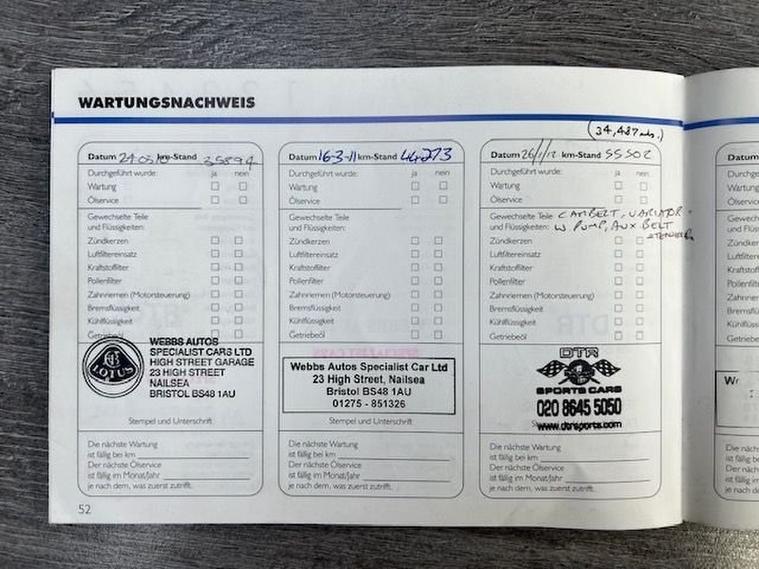 WARTUNGSNACHWEIS
Datum km-Stand 35894
Durchgeführt wurde: ja nein
Wartung
Ölservice
Gewechselte Teile
und Flüssigkeiten:
Zündkerzen
Luftfiltereinsatz
Kraftstoffilter
Pollenfilter
Zahnriemen (Motorsteuerung)
Bremsflüssigkeit
Kühlflüssigkeit
Getriebeöl
LOTUS
WEBBS AUTOS
SPECIALIST CARS LTD
HIGH STREET GARAGE
23 HIGH STREET
NAILSEA
BRISTOL BS48 1AU
Stempel und Unterschrift
Die nächste Wartung
ist fällig bei km
Der nächste Ölservice
ist fällig im Monat/Jahr
je nach dem, was zuerst zutrifft.
52
Datum 16-3-11 km-Stand
Durchgeführt wurde: ja nein
Wartung
Ölservice
Gewechselte Teile
und Flüssigkeiten:
Zündkerzen
Luftfiltereinsatz
Kraftstoffilter
Pollenfilter
Zahnriemen (Motorsteuerung)
Bremsflüssigkeit
Kühlflüssigkeit
Getriebeöl
Webbs Autos Specialist Car Ltd
23 High Street, Nailsea
Bristol BS48 1AU
01275 - 851326
Stempel und Unterschrift
Die nächste Wartung
ist fällig bei km
Der nächste Ölservice
ist fällig im Monat/Jahr
je nach dem, was zuerst zutrifft.
(34,487 mls.)
Datum 26/1/12 km-Stand 55502
Durchgeführt wurde: ja nein
Wartung
Ölservice
Gewechselte Teile CAMBELT, VARIATOR
und Flüssigkeiten: W PUMP, AUX BELT
Zündkerzen
Luftfiltereinsatz
Kraftstoffilter
Pollenfilter
Zahnriemen (Motorsteuerung)
Bremsflüssigkeit
Kühlflüssigkeit
Getriebeöl
DTR
SPORTS CARS
020 8645 5050
www.dtrsports.com
Die nächste Wartung
ist fällig bei km
Der nächste Ölservice
ist fällig im Monat/Jahr
je nach dem, was zuerst zutrifft.